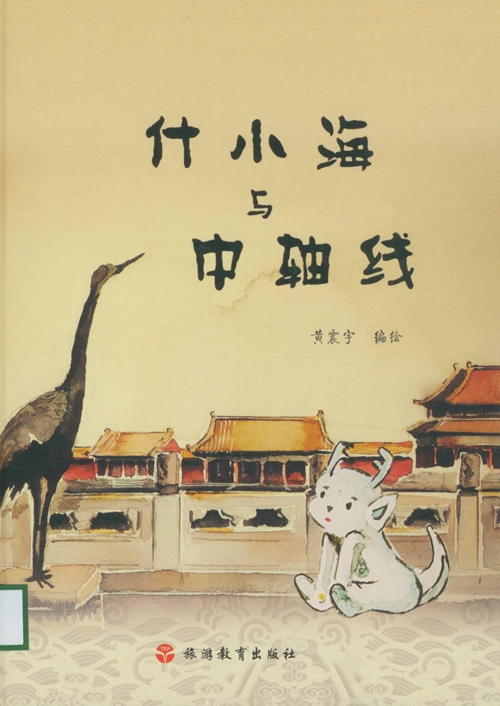 什小海
与
中轴线
黄震宇 编绘
TEP
旅游教育出版社